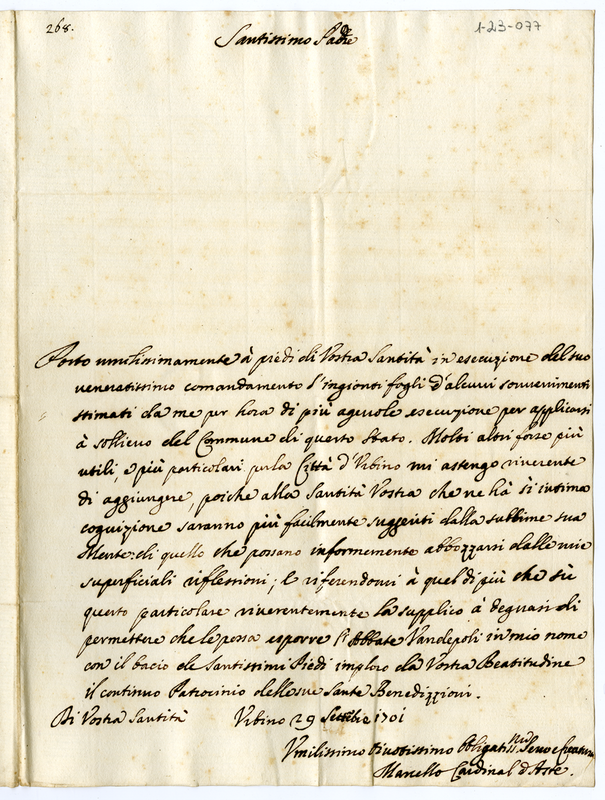 268.
1-23-077
Santissimo Padre
Porto umilissimamente à piedi di Vostra Santità in esecuzione del suo
veneratissimo comandamento l'ingionti fogli d'alcuni sovvenimenti
stimati da me per hora di più agevole esecuzione per applicarsi
à sollievo del Commune di questo Stato. Molti altri forse più
utili, e più particolari per la Città d'Urbino mi astengo riverente
di aggiungere, poiche alla Santità Vostra che ne hà sì intima
cognizione saranno più facilmente suggeriti dalla sublime sua
Mente di quello che possano informemente abbozzarsi dalle mie
superficiali riflessioni; e riferendomi à quel di più che sù
questo particolare riverentemente la supplico à degnarsi di
permettere che le possa esporre l'Abbate Vandepoli in mio nome
con il bacio de Santissimi Piedi imploro dà Vostra Beatitudine
il continuo Patrocinio delle sue Sante Benedizzioni.
Di Vostra Santità Urbino 29 Settbre 1701
Umilissimo Divotissimo Obligatiss.mo Servo e Creatura
Marcello Cardinal d'Aste.